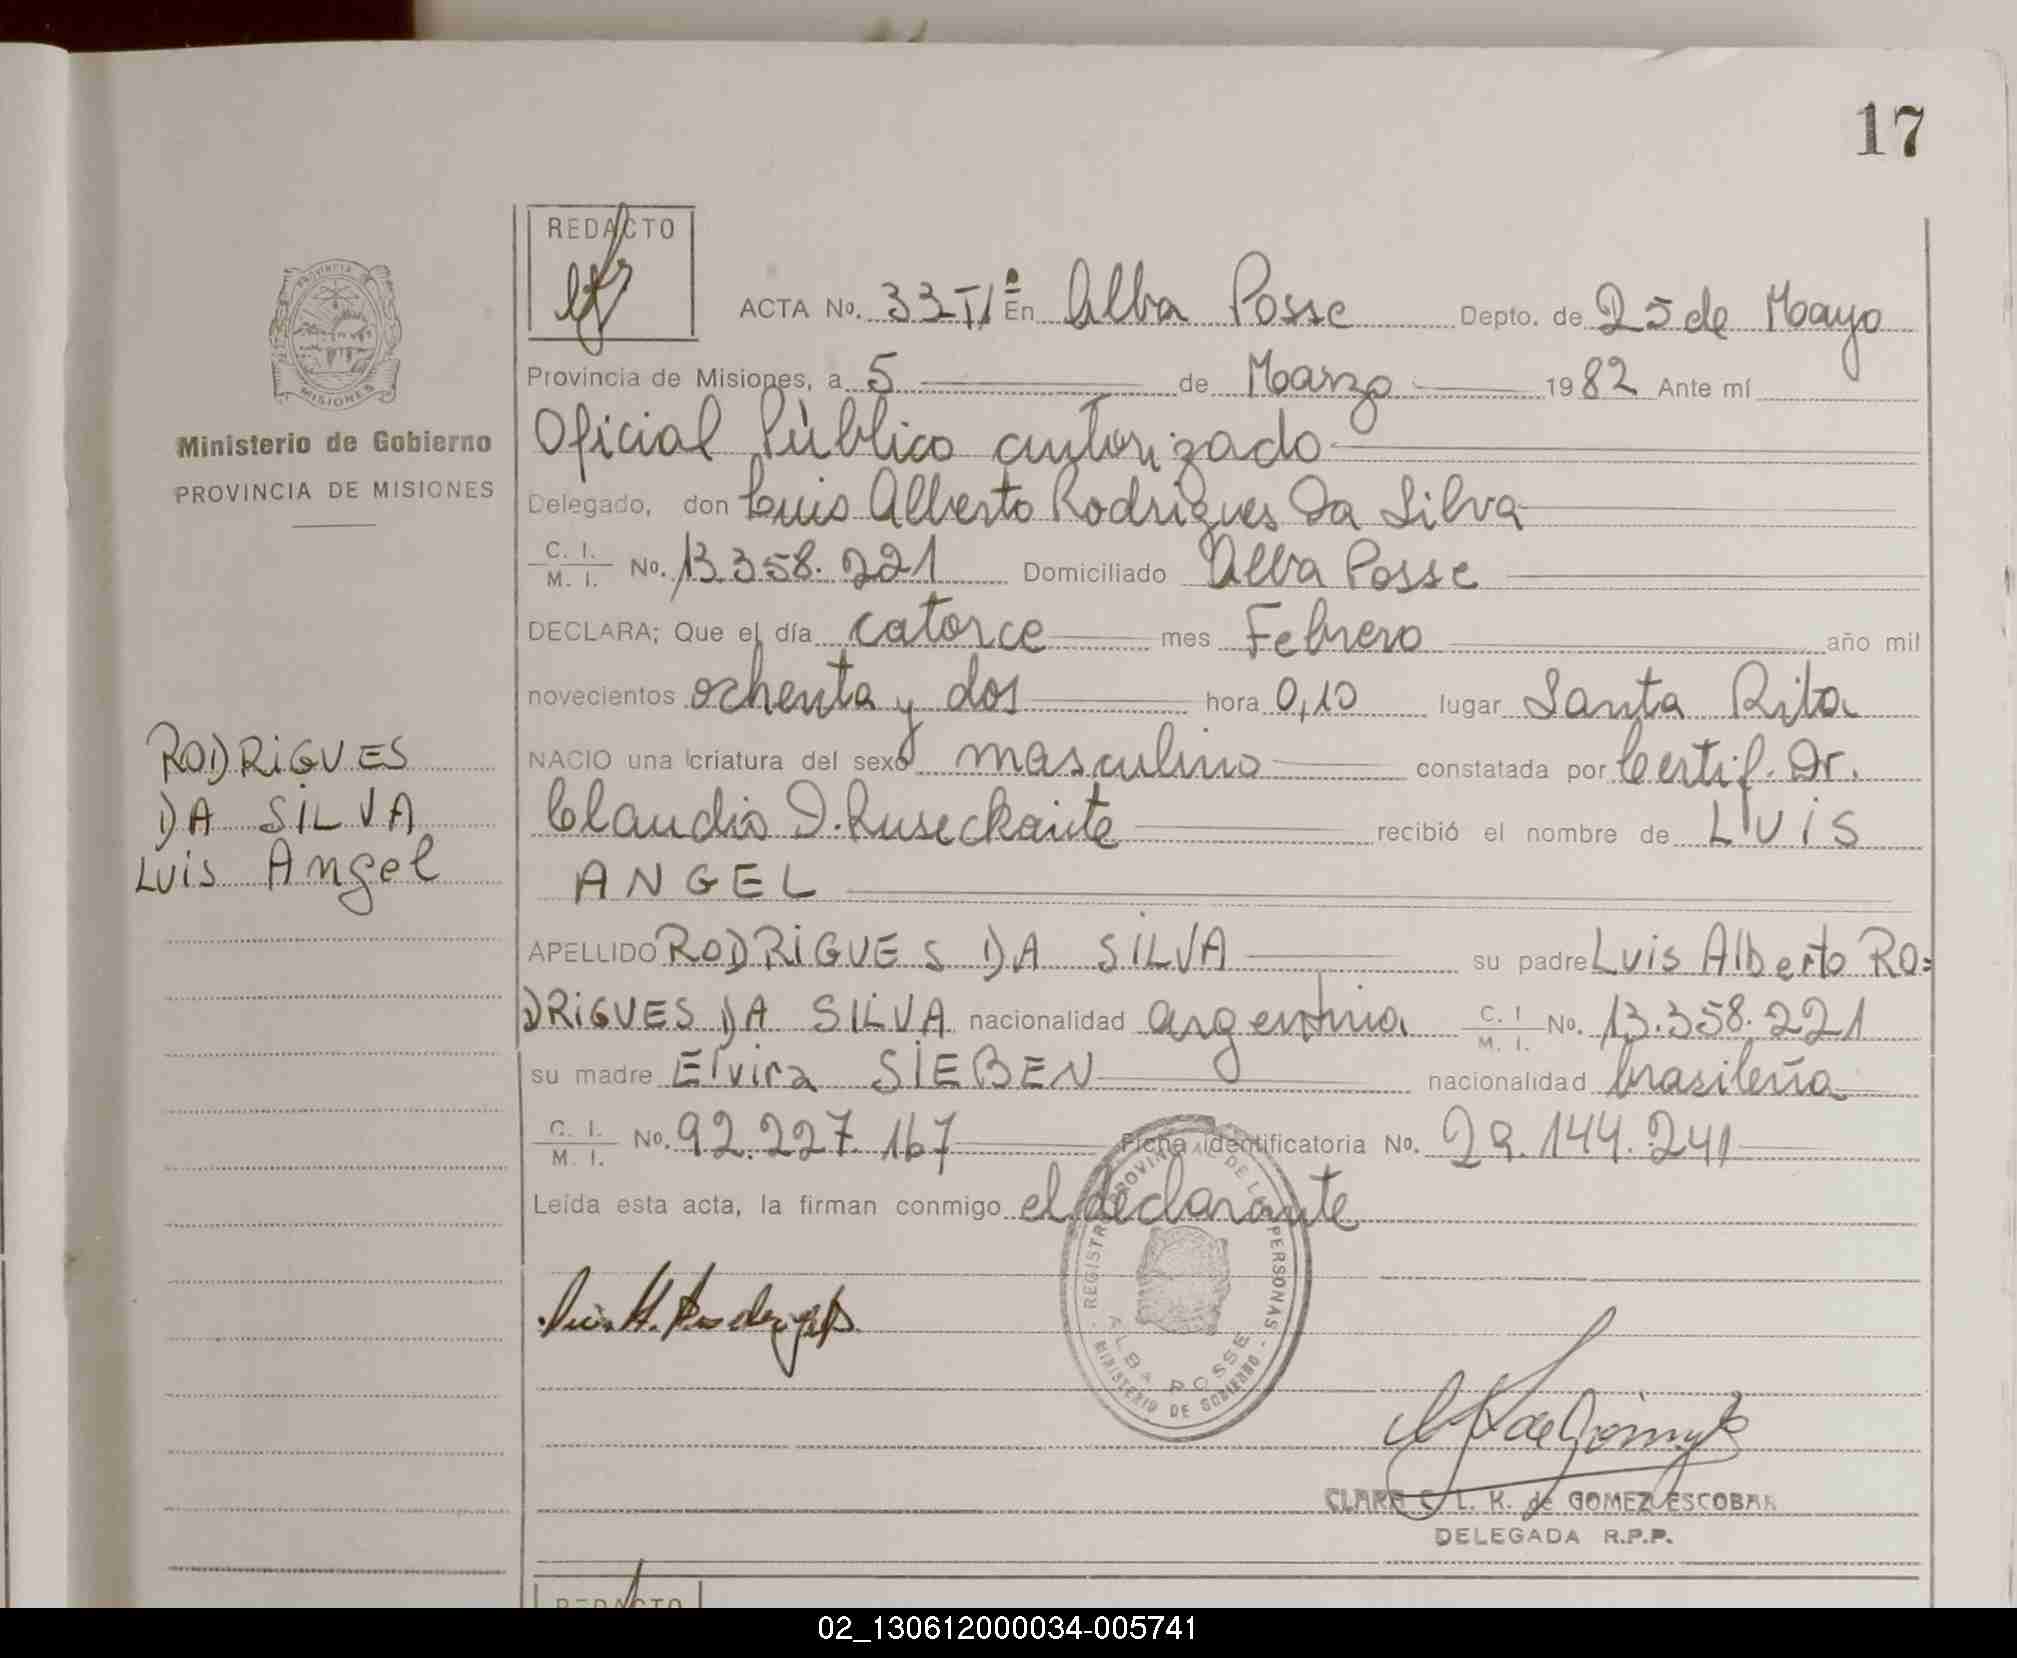 17
REDACTO
ACTA No. 33 TIª En Alba Posse Depto. de 25 de Mayo
Provincia de Misiones, a 5 de Marzo 1982 Ante mí
Oficial Público autorizado
Delegado, don Luis Alberto Rodrigues Da Silva
C. I. / M. I. No. 13.358.221 Domiciliado Alba Posse
DECLARA; Que el día catorce mes Febrero año mil
novecientos ochenta y dos hora 0,10 lugar Santa Rita
NACIO una criatura del sexo masculino constatada por Certif. Dr.
Claudio D. Ruseckaite recibió el nombre de LUIS
ANGEL
APELLIDO RODRIGUES DA SILVA su padre Luis Alberto RO=
DRIGUES DA SILVA nacionalidad argentina C. I / M. I. No. 13.358.221
su madre Elvira SIEBEN nacionalidad brasileña
C. I. / M. I. No. 92.227.167 Ficha identificatoria No. 29.144.241
Leída esta acta, la firman conmigo el declarante
PROVINCIA DE
MISIONES
Ministerio de Gobierno
PROVINCIA DE MISIONES
RODRIGUES
DA SILVA
Luis Angel
REGISTRO PROVINCIAL DE LAS PERSONAS
ALBA POSSE
MINISTERIO DE GOBIERNO
CLARA C. L. K. de GOMEZ ESCOBAR
DELEGADA R.P.P.
REDACTO
02_130612000034-005741